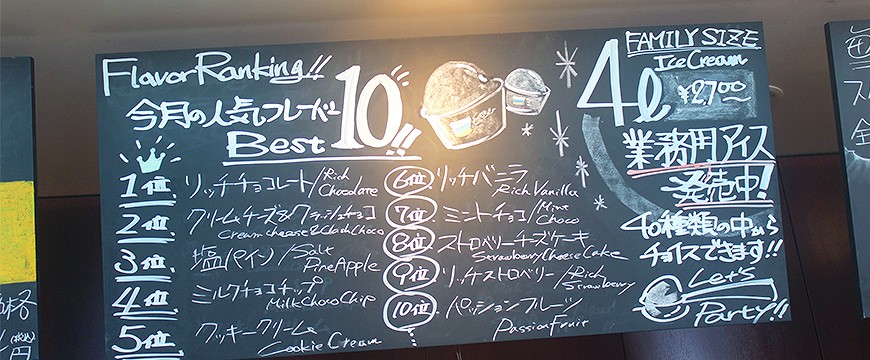 Flavor Ranking!!
今月の人気フレーバー
Best 10!!
1位 リッチチョコレート/Rich Chocolate
2位 クリームチーズ&クラッシュチョコ
Creamcheese&ClachChoco
3位 塩パイン/Salt PineApple
4位 ミルクチョコチップ
MilkChocoChip
5位 クッキークリーム
Cookie Cream
6位 リッチバニラ
Rich Vanilla
7位 ミントチョコ/Mint Choco
8位 ストロベリーチーズケーキ
StrawberryCheeseCake
9位 リッチストロベリー/Rich Strawberry
10位 パッションフルーツ
PassionFruit
FAMILY SIZE
Ice Cream
4ℓ ¥2,700~
業務用アイス
発売中!
40種類の中から
チョイスできます!!
Let's
Party!!